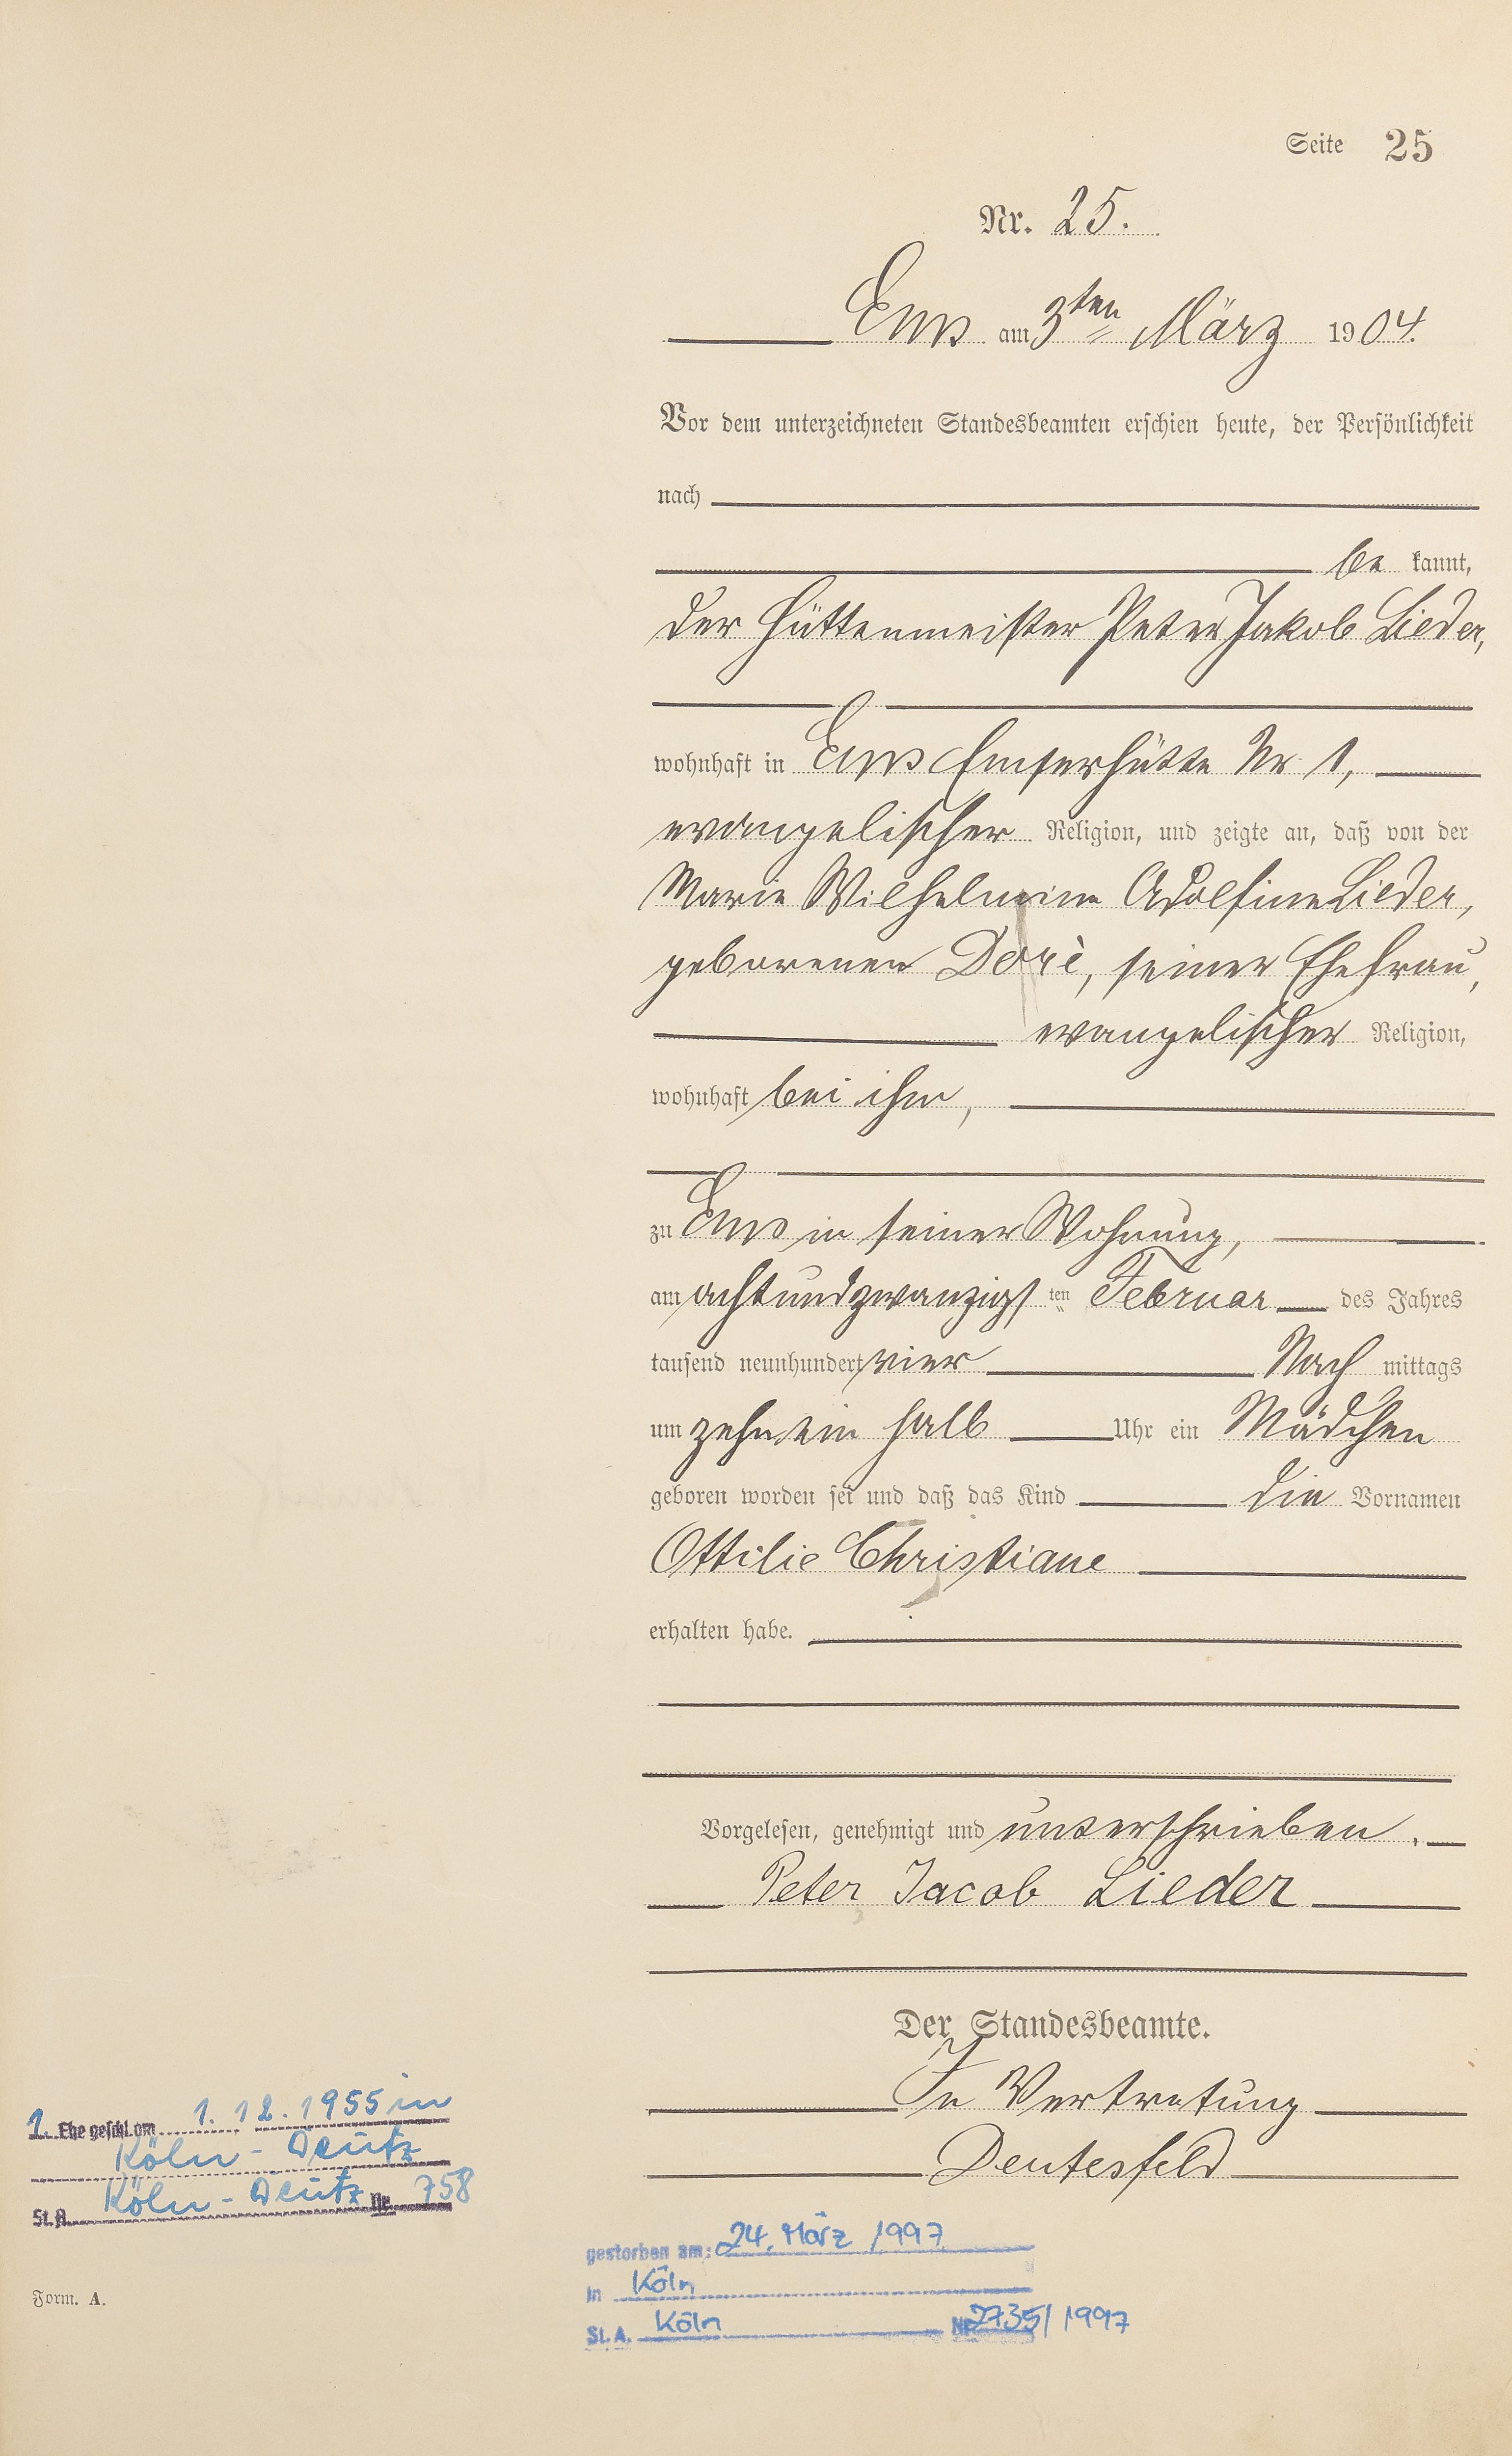 Seite 25
Nr. 25.
Ems am 3ten März 1904.
Vor dem unterzeichneten Standesbeamten erschien heute, der Persönlichkeit
nach
be kannt,
der Hüttenmeister Peter Jakob Lieder,
wohnhaft in Ems Emserhütte Nr 1,
evangelischer Religion, und zeigte an, daß von der
Marie Wilhelmine Adolfine Lieder,
geborenen Doré, seiner Ehefrau,
evangelischer Religion,
wohnhaft bei ihm,
zu Ems in seiner Wohnung,
am achtundzwanzigsten Februar des Jahres
tausend neunhundert vier Nach mittags
um zehn ein halb Uhr ein Mädchen
geboren worden sei und daß das Kind die Vornamen
Ottilie Christiane
erhalten habe.
Vorgelesen, genehmigt und unterschrieben.
Peter Jacob Lieder
Der Standesbeamte.
In Vertretung
Deutesfeld
1. Ehe geschl. am 1. 12. 1955 in
Köln-Deutz
St. A. Köln-Deutz Nr. 758
gestorben am: 24. März 1997
in Köln
St. A. Köln Nr. 2735/1997
Form. A.